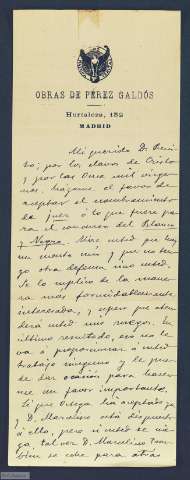 OBRAS DE PÉREZ GALDÓS
Hortaleza, 132
MADRID
Mi querido D. Beni-
to; por los clavos de Cristo
y por las Once mil vírge-
nes, hágame el favor de
aceptar el nombramiento
de juez o lo que fuere pa-
ra el concurso del Blanco
y Negro. Mire usted que hay
un cuento mío y que no ten-
go otra defensa sino usted.
Se lo suplico de la mane-
ra más formidablemente
interesada, y espero que aten-
derá usted mis ruegos. En
último resultado, eso no le
va á proporcionar á usted
trabajo ninguno y le pue-
de dar ocasión para hacer-
me un favor importante.
Sé que Ortega ha aceptado ya
y D. Marcelino está dispuesto
á ello, pero si usted se nie-
ga, tal vez D. Marcelino tam-
bién se eche para atrás